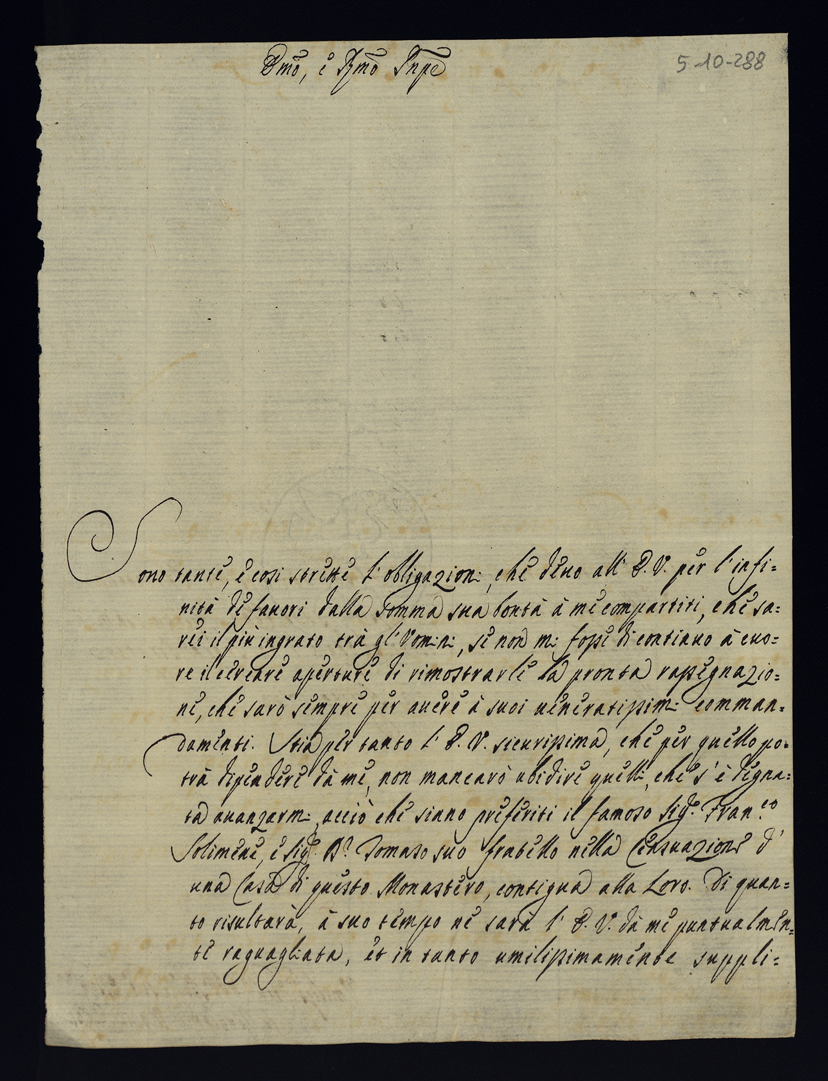 5-10-288
Emō, e Rmō Prīpe
Sono tante, e cosi strette l'obligazioni, che devo all' E. V. per l'infi=
nità di favori dalla somma sua bontà à me compartiti, che sa=
rei il più ingrato trà gl'Vomini, se non mi fosse di continuo à cuo=
re il cercare aperture di rimostrarle la pronta rassegnazio=
ne, che sarò sempre per avere à suoi veneratissimi comman=
damenti. Stia per tanto l' E. V. sicurissima, che per quello po=
trà dipendere dà me, non mancarò ubidire quelli, che s'è degna=
ta avanzarmi, acciò che siano preferiti il famoso Sig.r Fran.co
Solimene, e Sig.r D. Tomaso suo fratello nella Censuazione d'
una Casa di questo Monastero, contigua alla Loro. Di quan=
to risultarà, à suo tempo ne sarà l' E. V. dà me puntualmen=
te raguagliata, et in tanto umilissimamente suppli=